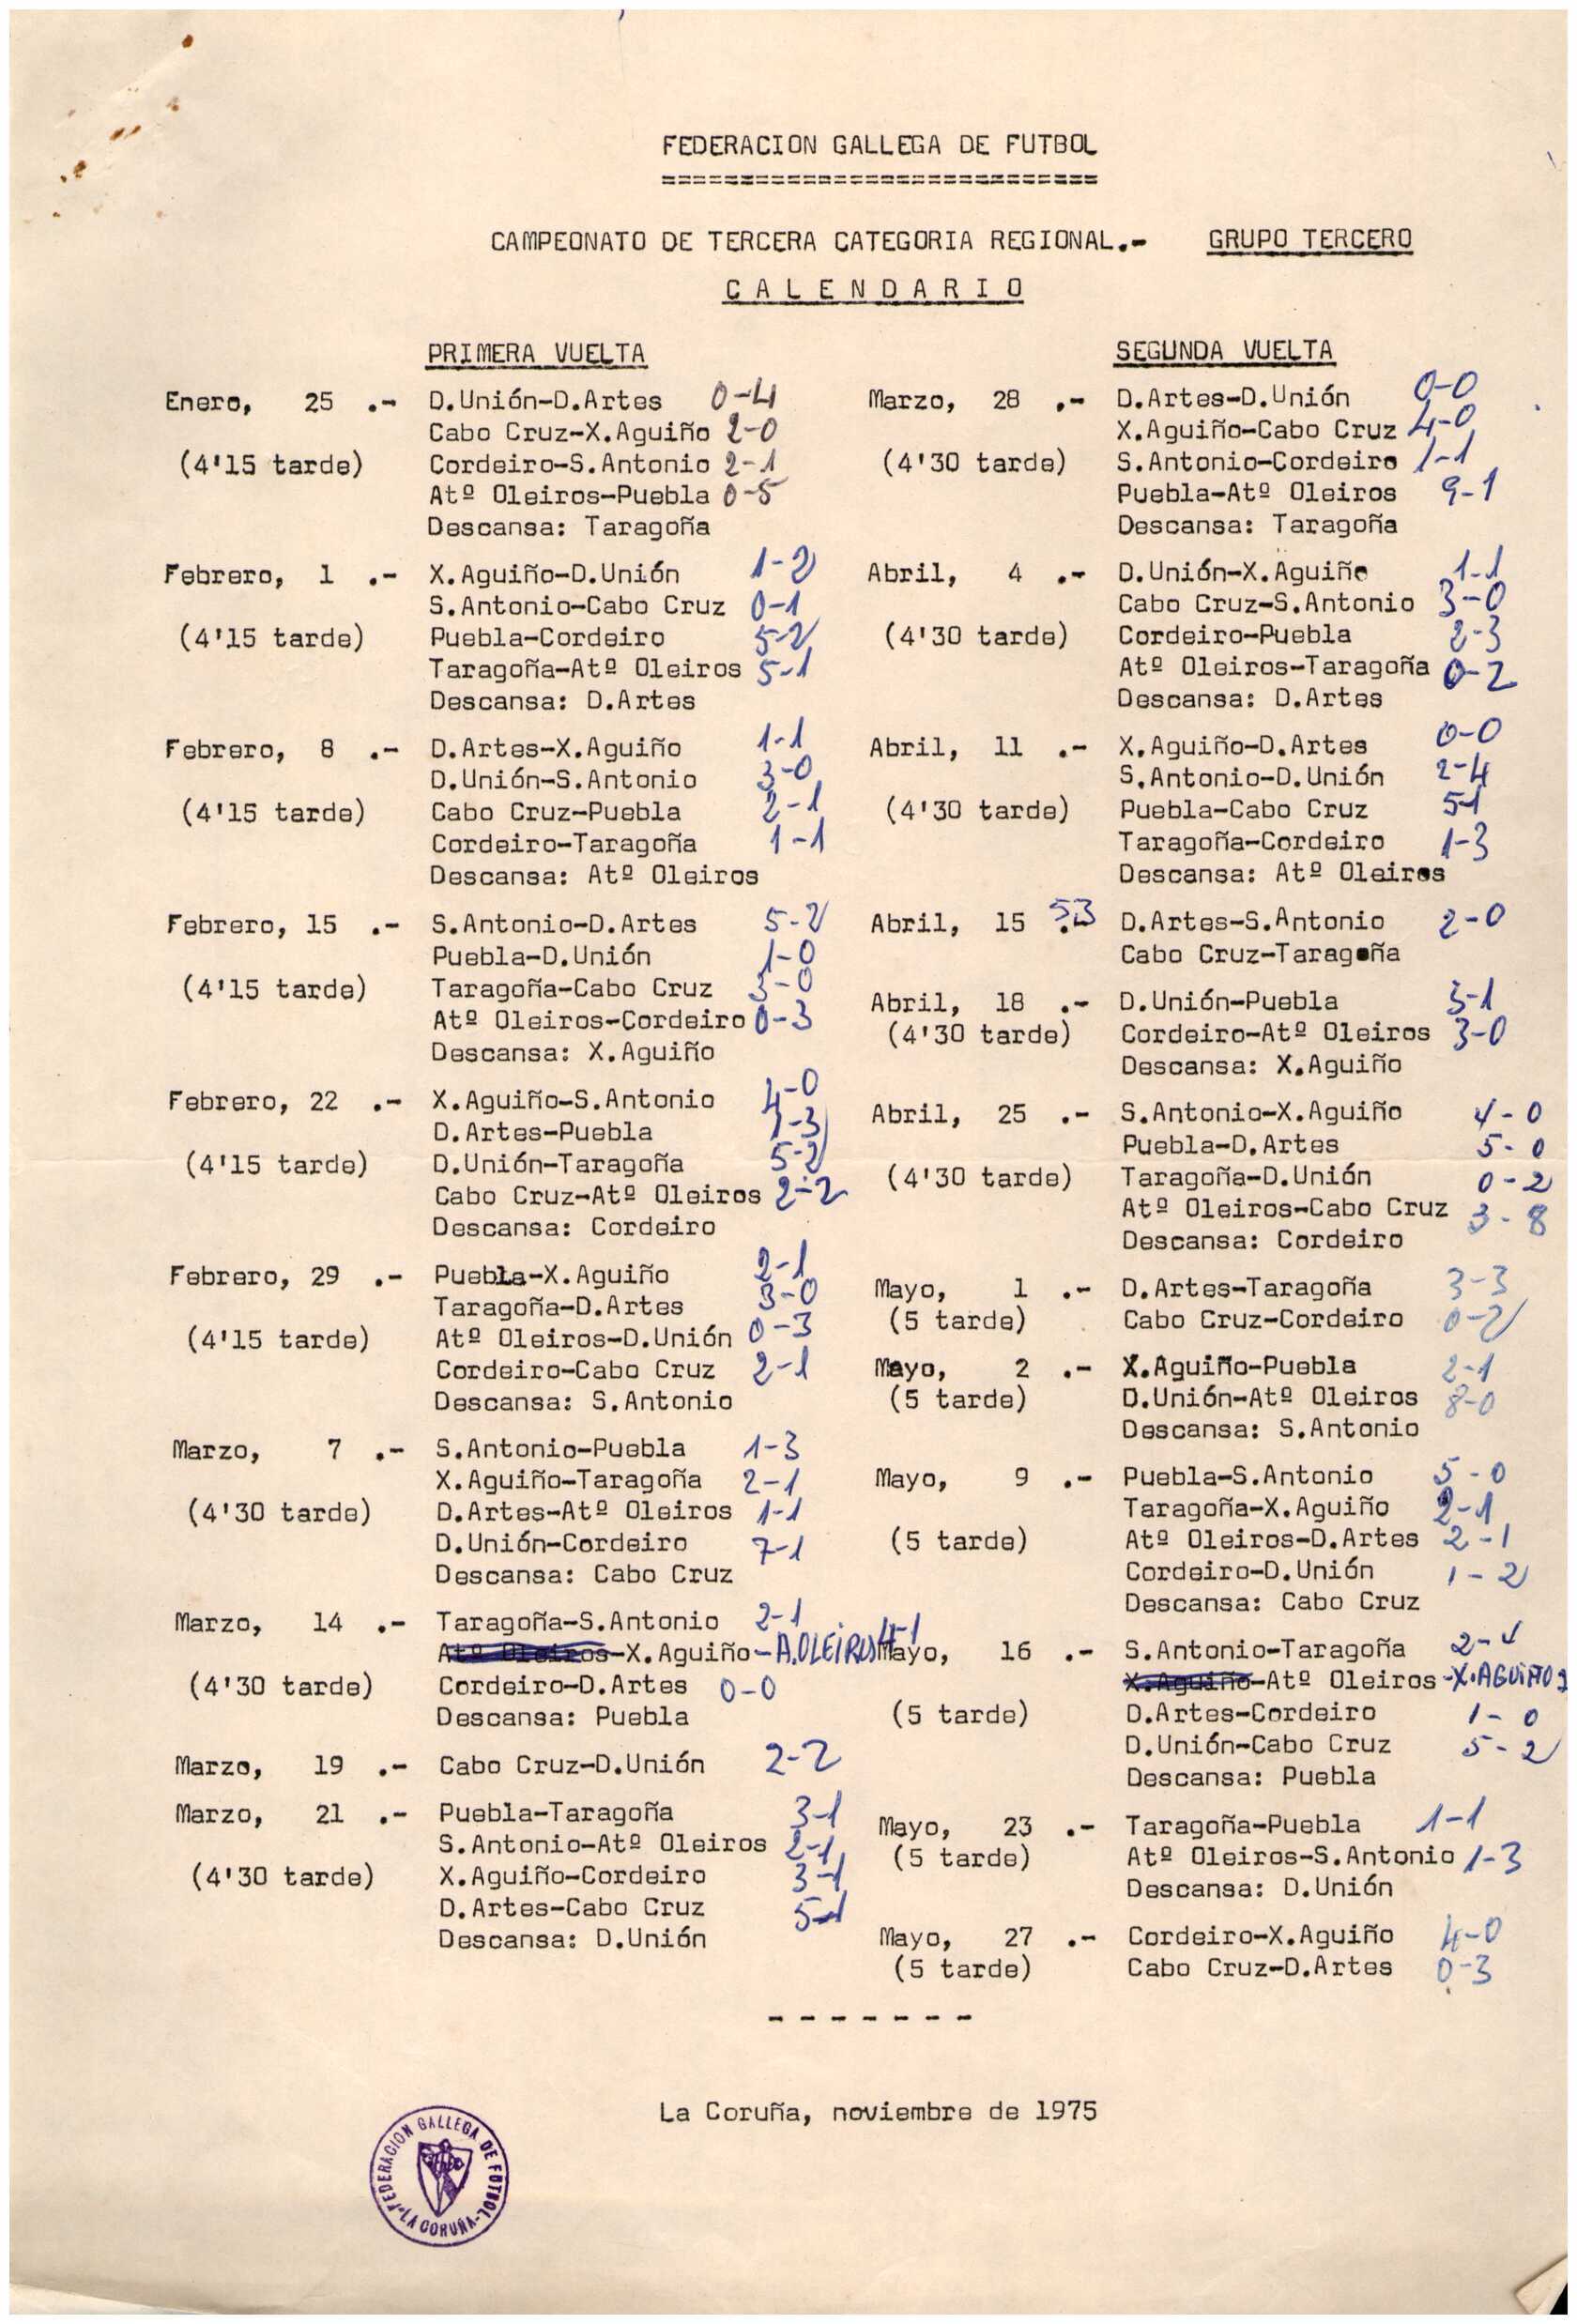 FEDERACION GALLEGA DE FUTBOL
============================
CAMPEONATO DE TERCERA CATEGORIA REGIONAL.- GRUPO TERCERO
C A L E N D A R I O
PRIMERA VUELTA
Enero, 25 .- D.Unión-D.Artes 0-4
Cabo Cruz-X.Aguiño 2-0
(4'15 tarde) Cordeiro-S.Antonio 2-1
Atº Oleiros-Puebla 0-5
Descansa: Taragoña
Febrero, 1 .- X.Aguiño-D.Unión 1-2
S.Antonio-Cabo Cruz 0-1
(4'15 tarde) Puebla-Cordeiro 5-2
Taragoña-Atº Oleiros 5-1
Descansa: D.Artes
Febrero, 8 .- D.Artes-X.Aguiño 1-1
D.Unión-S.Antonio 3-0
(4'15 tarde) Cabo Cruz-Puebla 2-1
Cordeiro-Taragoña 1-1
Descansa: Atº Oleiros
Febrero, 15 .- S.Antonio-D.Artes 5-2
Puebla-D.Unión 1-0
(4'15 tarde) Taragoña-Cabo Cruz 3-0
Atº Oleiros-Cordeiro 0-3
Descansa: X.Aguiño
Febrero, 22 .- X.Aguiño-S.Antonio 4-0
D.Artes-Puebla 1-3
(4'15 tarde) D.Unión-Taragoña 5-2
Cabo Cruz-Atº Oleiros 2-2
Descansa: Cordeiro
Febrero, 29 .- Puebla-X.Aguiño 2-1
Taragoña-D.Artes 3-0
(4'15 tarde) Atº Oleiros-D.Unión 0-3
Cordeiro-Cabo Cruz 2-1
Descansa: S.Antonio
Marzo, 7 .- S.Antonio-Puebla 1-3
X.Aguiño-Taragoña 2-1
(4'30 tarde) D.Artes-Atº Oleiros 1-1
D.Unión-Cordeiro 7-1
Descansa: Cabo Cruz
Marzo, 14 .- Taragoña-S.Antonio 2-1
Atº Oleiros-X.Aguiño-A.OLEIROS 4-1
(4'30 tarde) Cordeiro-D.Artes 0-0
Descansa: Puebla
Marzo, 19 .- Cabo Cruz-D.Unión 2-2
Marzo, 21 .- Puebla-Taragoña 3-1
S.Antonio-Atº Oleiros 2-1
(4'30 tarde) X.Aguiño-Cordeiro 3-1
D.Artes-Cabo Cruz 5-1
Descansa: D.Unión
SEGUNDA VUELTA
Marzo, 28 .- D.Artes-D.Unión 0-0
X.Aguiño-Cabo Cruz 4-0
(4'30 tarde) S.Antonio-Cordeiro 1-1
Puebla-Atº Oleiros 9-1
Descansa: Taragoña
Abril, 4 .- D.Unión-X.Aguiño 1-1
Cabo Cruz-S.Antonio 3-0
(4'30 tarde) Cordeiro-Puebla 2-3
Atº Oleiros-Taragoña 0-2
Descansa: D.Artes
Abril, 11 .- X.Aguiño-D.Artes 0-0
S.Antonio-D.Unión 2-4
(4'30 tarde) Puebla-Cabo Cruz 5-1
Taragoña-Cordeiro 1-3
Descansa: Atº Oleiros
Abril, 15 .- D.Artes-S.Antonio 2-0
Cabo Cruz-Taragoña
Abril, 18 .- D.Unión-Puebla 3-1
(4'30 tarde) Cordeiro-Atº Oleiros 3-0
Descansa: X.Aguiño
Abril, 25 .- S.Antonio-X.Aguiño 4-0
Puebla-D.Artes 5-0
(4'30 tarde) Taragoña-D.Unión 0-2
Atº Oleiros-Cabo Cruz 3-8
Descansa: Cordeiro
Mayo, 1 .- D.Artes-Taragoña 3-3
(5 tarde) Cabo Cruz-Cordeiro 0-2
Mayo, 2 .- X.Aguiño-Puebla 2-1
(5 tarde) D.Unión-Atº Oleiros 8-0
Descansa: S.Antonio
Mayo, 9 .- Puebla-S.Antonio 5-0
Taragoña-X.Aguiño 2-1
(5 tarde) Atº Oleiros-D.Artes 2-1
Cordeiro-D.Unión 1-2
Descansa: Cabo Cruz
Mayo, 16 .- S.Antonio-Taragoña
X.Aguiño-Atº Oleiros-X.AGUIÑO
(5 tarde) D.Artes-Cordeiro 1-0
D.Unión-Cabo Cruz 5-2
Descansa: Puebla
Mayo, 23 .- Taragoña-Puebla 1-1
(5 tarde) Atº Oleiros-S.Antonio 1-3
Descansa: D.Unión
Mayo, 27 .- Cordeiro-X.Aguiño 4-0
(5 tarde) Cabo Cruz-D.Artes 0-3
- - - - - - -
La Coruña, noviembre de 1975
FEDERACION GALLEGA DE FUTBOL
-LA CORUÑA-